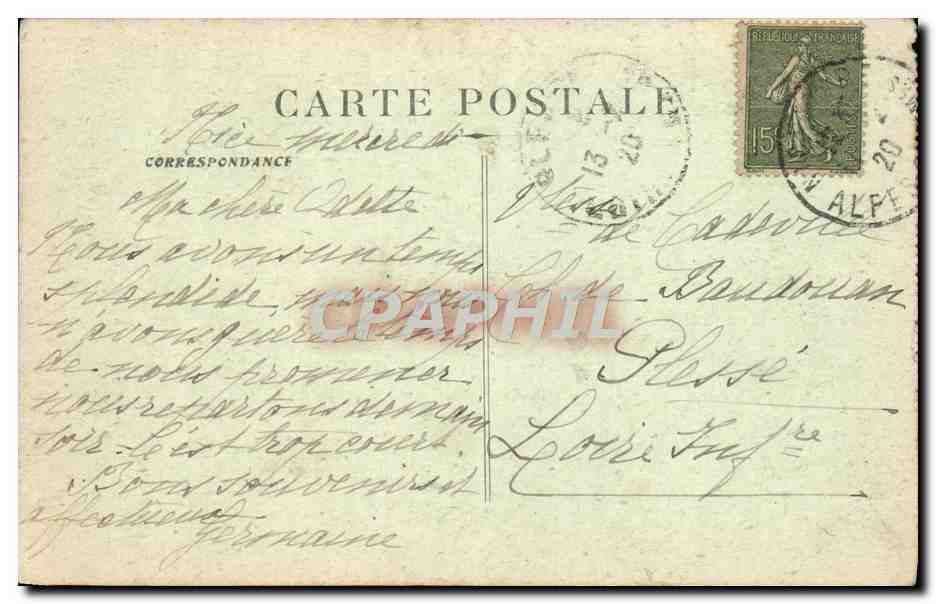 RÉPUBLIQUE FRANÇAISE
15c
POSTES
CARTE POSTALE
13
20
20
ALPES
Nice mercredi
CORRESPONDANCE
Ma chère Odette
Nous avons un temps
splendide, mais nous
n'avons guère le temps
de nous promener
nous repartons demain
soir. C'est trop court.
Bons souvenirs et
affectueux
Germaine
Vtesse
de Cadeville
Ch. de Baudouan
Plessé
Loire Infre
CPAPHIL